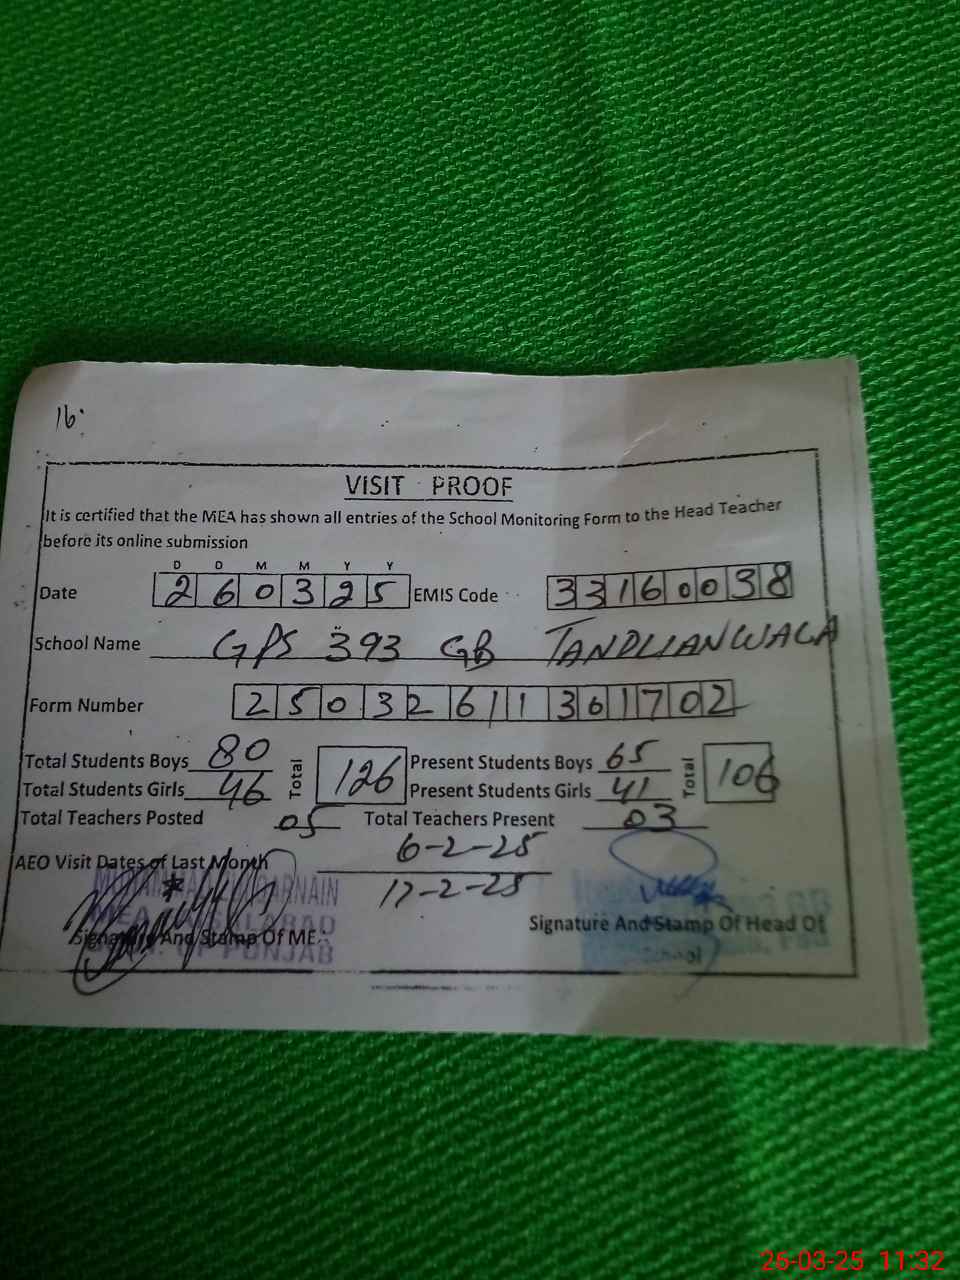 16
VISIT PROOF
It is certified that the MEA has shown all entries of the School Monitoring Form to the Head Teacher
before its online submission
D D M M Y Y
Date 260325 EMIS Code 33160038
School Name GPS 393 GB TANDLIANWALA
Form Number 25032611361702
Total Students Boys 80 Total 126 Present Students Boys 65 Total 106
Total Students Girls 46 Present Students Girls 41
Total Teachers Posted 05 Total Teachers Present 03
AEO Visit Dates of Last Month 6-2-25
17-2-25
Signature And Stamp Of Head Of
School
Signature And Stamp Of ME
OF PUNJAB
26-03-25 11:32